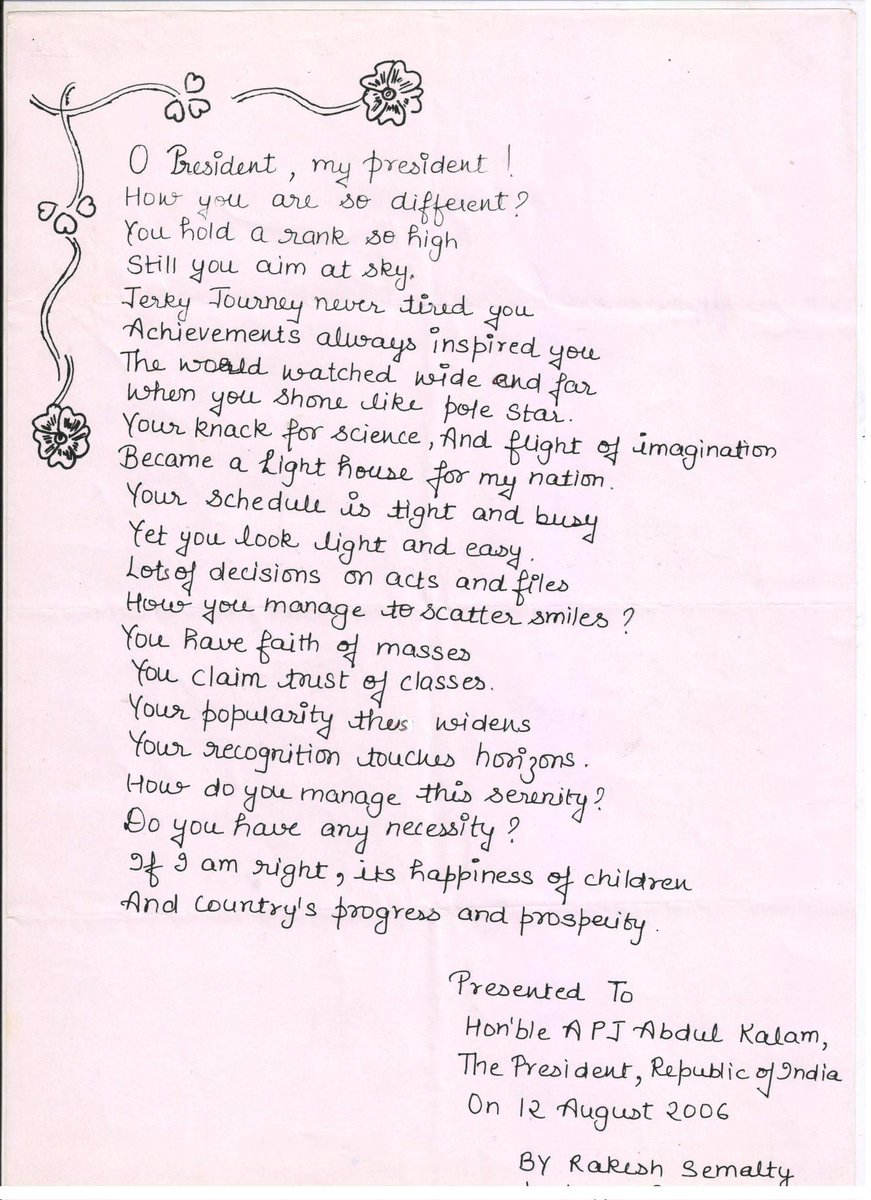 O President, my president!
How you are so different?
You hold a rank so high
Still you aim at sky.
Jerky Journey never tired you
Achievements always inspired you
The world watched wide and far
When you shone like pole star.
Your knack for science, And flight of imagination
Became a Light house for my nation.
Your schedule is tight and busy
Yet you look light and easy.
Lots of decisions on acts and files
How you manage to scatter smiles?
You have faith of masses
You claim trust of classes.
Your popularity thus widens
Your recognition touches horizons.
How do you manage this serenity?
Do you have any necessity?
If I am right, its happiness of children
And country's progress and prosperity.
Presented To
Hon'ble A P J Abdul Kalam,
The President, Republic of India
On 12 August 2006
BY Rakesh Semalty